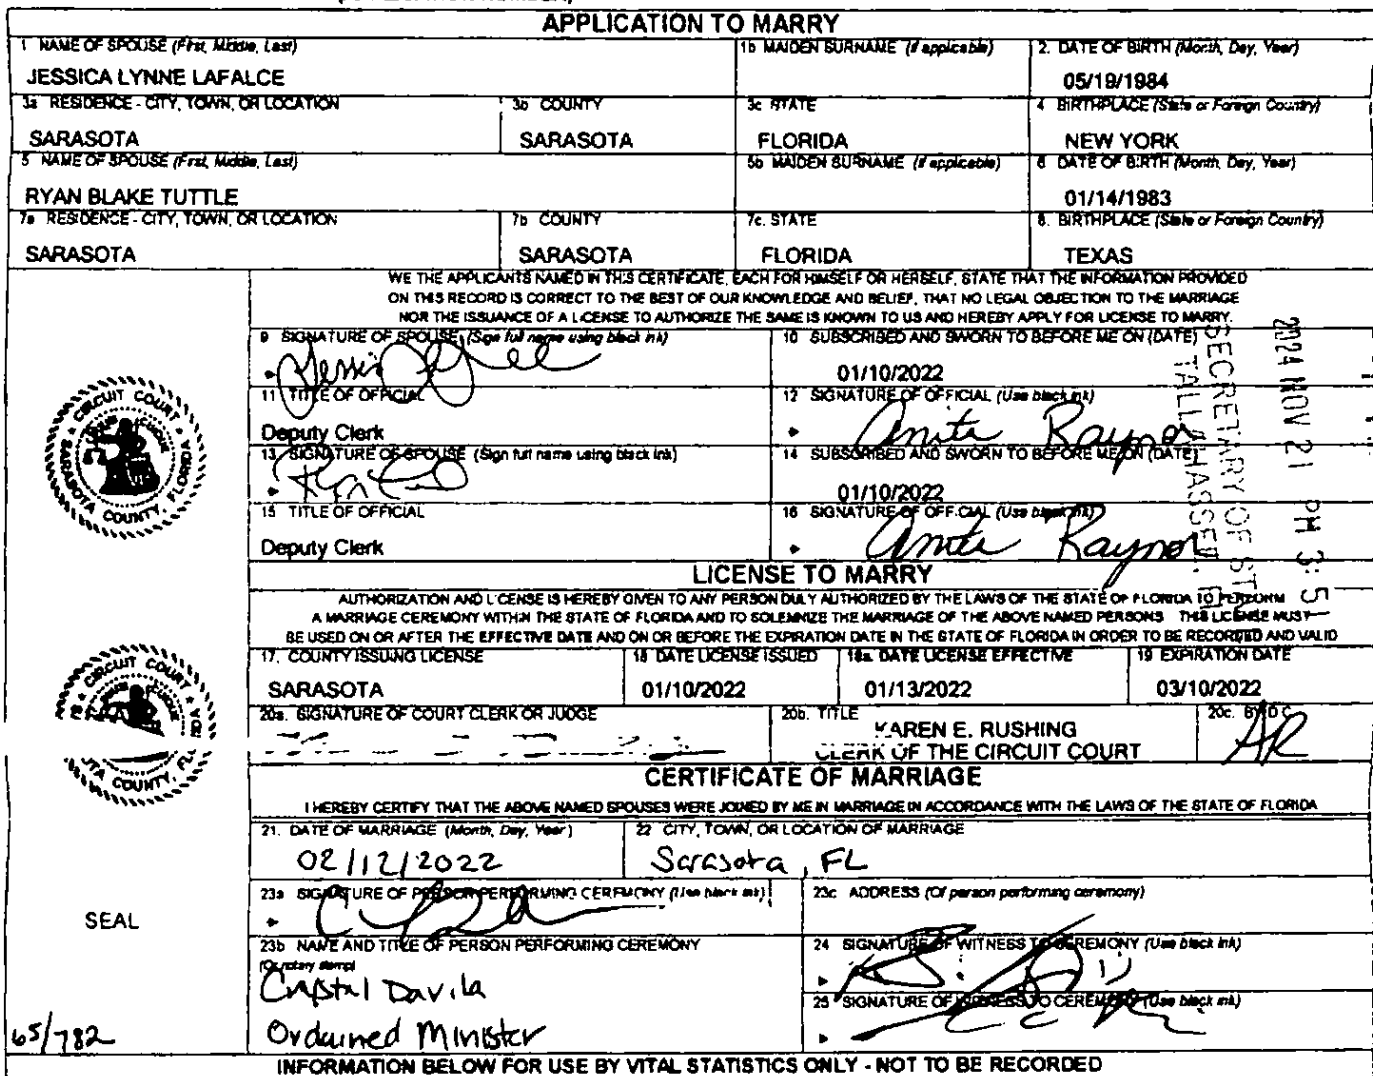 APPLICATION TO MARRY
1 NAME OF SPOUSE (First, Middle, Last)
1b MAIDEN SURNAME (if applicable)
2. DATE OF BIRTH (Month, Day, Year)
JESSICA LYNNE LAFALCE
05/19/1984
3a RESIDENCE - CITY, TOWN, OR LOCATION
3b COUNTY
3c STATE
4 BIRTHPLACE (State or Foreign Country)
SARASOTA
SARASOTA
FLORIDA
NEW YORK
5 NAME OF SPOUSE (First, Middle, Last)
5b MAIDEN SURNAME (if applicable)
6 DATE OF BIRTH (Month, Day, Year)
RYAN BLAKE TUTTLE
01/14/1983
7a RESIDENCE - CITY, TOWN, OR LOCATION
7b COUNTY
7c. STATE
8. BIRTHPLACE (State or Foreign Country)
SARASOTA
SARASOTA
FLORIDA
TEXAS
WE THE APPLICANTS NAMED IN THIS CERTIFICATE, EACH FOR HIMSELF OR HERSELF, STATE THAT THE INFORMATION PROVIDED
ON THIS RECORD IS CORRECT TO THE BEST OF OUR KNOWLEDGE AND BELIEF, THAT NO LEGAL OBJECTION TO THE MARRIAGE
NOR THE ISSUANCE OF A LICENSE TO AUTHORIZE THE SAME IS KNOWN TO US AND HEREBY APPLY FOR LICENSE TO MARRY.
9 SIGNATURE OF SPOUSE (Sign full name using black ink)
10 SUBSCRIBED AND SWORN TO BEFORE ME ON (DATE)
01/10/2022
11 TITLE OF OFFICIAL
12 SIGNATURE OF OFFICIAL (Use black ink)
Deputy Clerk
Anita Raynor
13. SIGNATURE OF SPOUSE (Sign full name using black ink)
14 SUBSCRIBED AND SWORN TO BEFORE ME ON (DATE)
01/10/2022
15 TITLE OF OFFICIAL
16 SIGNATURE OF OFFICIAL (Use black ink)
Deputy Clerk
Anita Raynor
2024 NOV 21 PM 3:51
SECRETARY OF STATE
CIRCUIT COURT
SARASOTA COUNTY, FLORIDA
LICENSE TO MARRY
AUTHORIZATION AND LICENSE IS HEREBY GIVEN TO ANY PERSON DULY AUTHORIZED BY THE LAWS OF THE STATE OF FLORIDA TO PERFORM
A MARRIAGE CEREMONY WITHIN THE STATE OF FLORIDA AND TO SOLEMNIZE THE MARRIAGE OF THE ABOVE NAMED PERSONS THIS LICENSE MUST
BE USED ON OR AFTER THE EFFECTIVE DATE AND ON OR BEFORE THE EXPIRATION DATE IN THE STATE OF FLORIDA IN ORDER TO BE RECORDED AND VALID
17. COUNTY ISSUING LICENSE
18 DATE LICENSE ISSUED
18a. DATE LICENSE EFFECTIVE
19 EXPIRATION DATE
SARASOTA
01/10/2022
01/13/2022
03/10/2022
20a. SIGNATURE OF COURT CLERK OR JUDGE
20b. TITLE
20c. BY D.C.
KAREN E. RUSHING
CLERK OF THE CIRCUIT COURT
AR
CIRCUIT COURT
COUNTY
CERTIFICATE OF MARRIAGE
I HEREBY CERTIFY THAT THE ABOVE NAMED SPOUSES WERE JOINED BY ME IN MARRIAGE IN ACCORDANCE WITH THE LAWS OF THE STATE OF FLORIDA
21. DATE OF MARRIAGE (Month, Day, Year)
22 CITY, TOWN, OR LOCATION OF MARRIAGE
02/12/2022
Sarasota, FL
23a SIGNATURE OF PERSON PERFORMING CEREMONY (Use black ink)
23c ADDRESS (Of person performing ceremony)
SEAL
23b NAME AND TITLE OF PERSON PERFORMING CEREMONY
(Or notary stamp)
24 SIGNATURE OF WITNESS TO CEREMONY (Use black ink)
Crystal Davila
Ordained Minister
25 SIGNATURE OF WITNESS TO CEREMONY (Use black ink)
65/782
INFORMATION BELOW FOR USE BY VITAL STATISTICS ONLY - NOT TO BE RECORDED